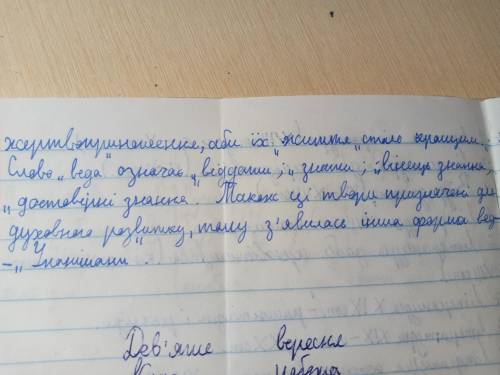 жертвоприношення, аби їх „життя„ стало кращим.
Слово „веда" означає „віддати„ і „знати„ і „вісище знання„
„достовірні знання. Також ці твори призначені для
духовного розвитку, тому з'явилась інша форма вед-
-„Упанішани".
Дев'яте вересня